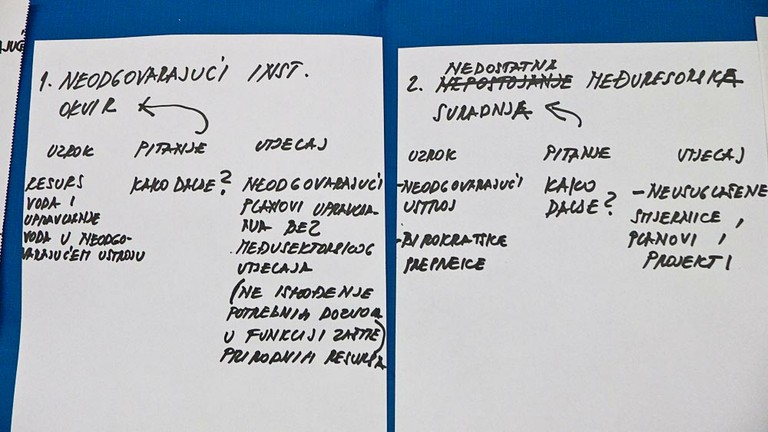 1. NEODGOVARAJUĆI INST.
OKVIR
UZROK PITANJE UTJECAJ
RESURS
VODA I
UPRAVLJANJE
VODA U NEODGO-
VARAJUĆEM USTROJU
KAKO DALJE?
NEODGOVARAJUĆI
PLANOVI UPRAVLJA-
NJA BEZ
MEĐUSEKTORSKOG
UTJECAJA
(NE ISHOĐENJE
POTREBNIH DOZVOLA
U FUNKCIJI ZAŠTITE
PRIRODNIH RESURSA
NEDOSTATNA
2. NEPOSTOJANJE MEĐURESORSKA
SURADNJA
UZROK PITANJE UTJECAJ
-NEODGOVARAJUĆI
USTROJ
-BIROKRATSKE
PREPREKE
KAKO
DALJE?
-NEUSUGLAŠENE
SMJERNICE,
PLANOVI,
PROJEKTI